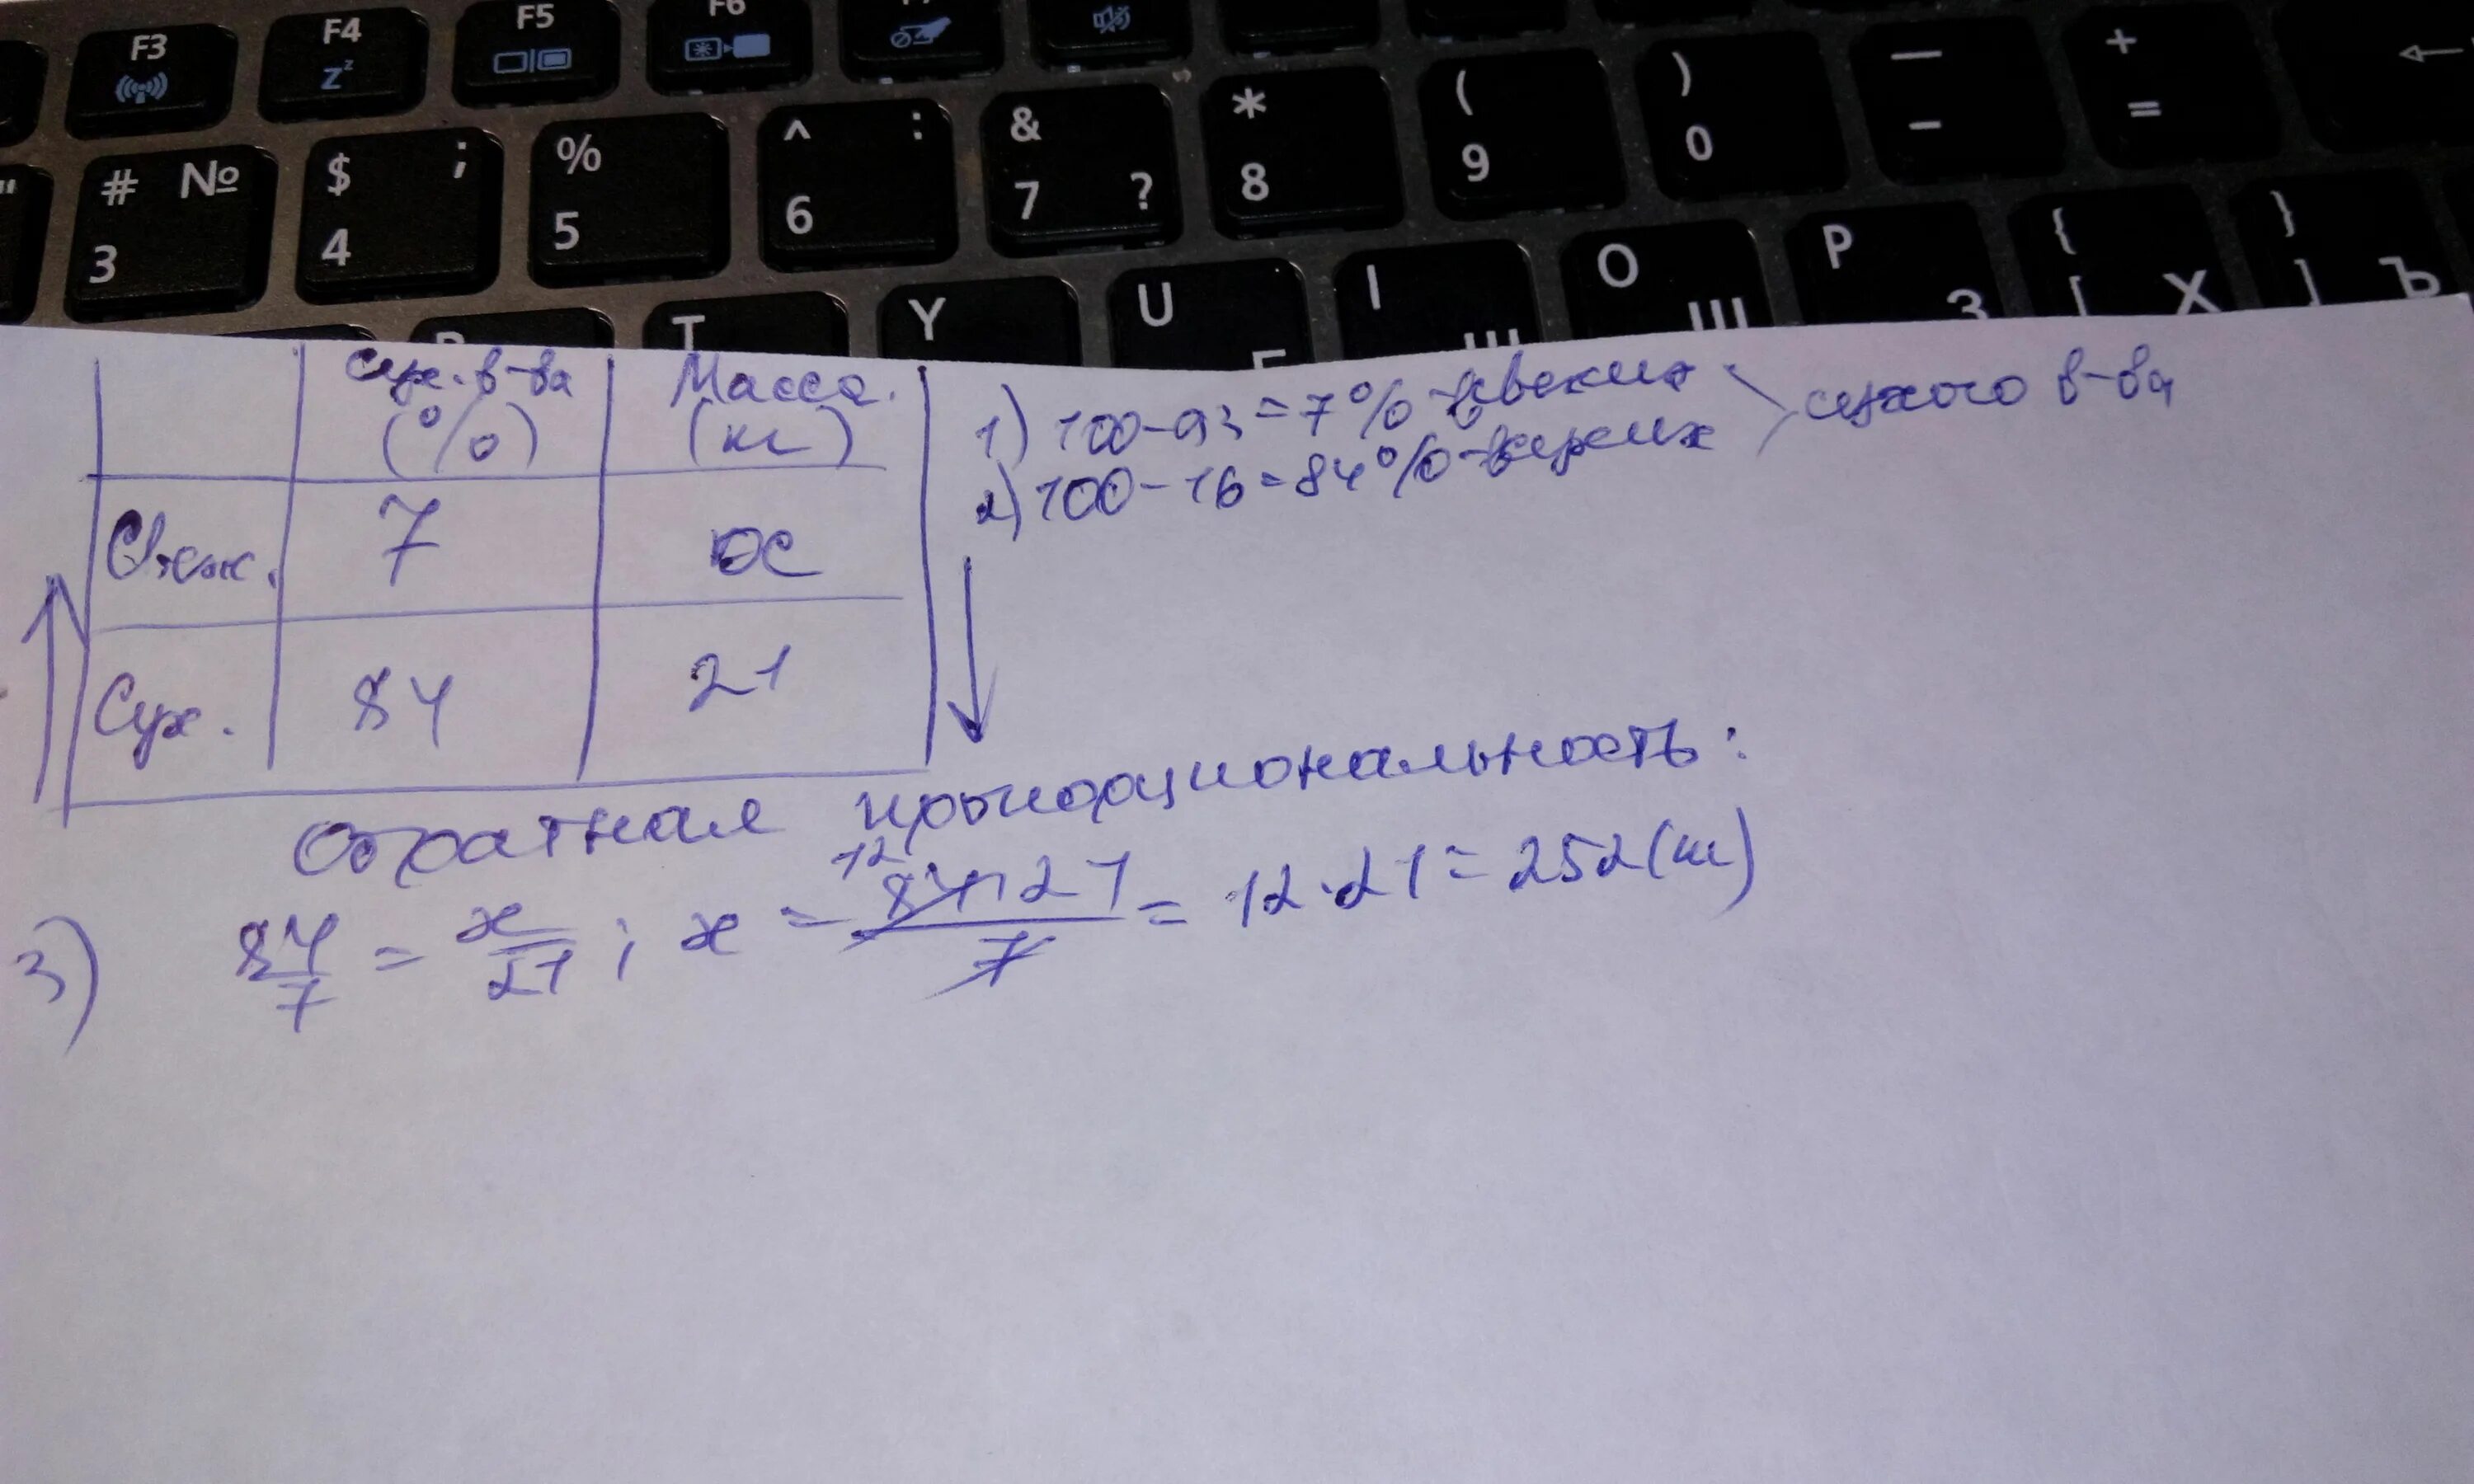 F3 F4 F5 F6
zz
# № $ ; % ^ : & * ( ) — +
3 4 5 6 7 ? 8 9 0 – =
T Y U I O P { }
Ш З [ Х ] Ъ
Сух. в-ва (%) Масса (кг)
Свеж. 7 x
Сух. 84 21
1) 100-93=7%-в свежих
2) 100-16=84%-в сухих
сухого в-ва
Обратная пропорциональность:
3) 84/7 = x/21; x = 84·21/7 = 12·21=252(кг)
12